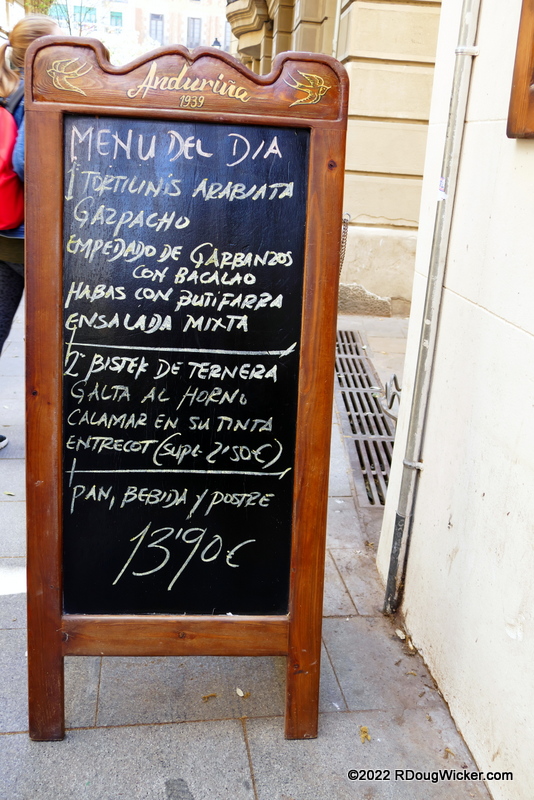 Anduriña
1939
MENU DEL DIA
1 TORTILINIS ARABIATA
GAZPACHO
EMPEDADO DE GARBANZOS
CON BACALAO
HABAS CON BUTIFARRA
ENSALADA MIXTA
2º BISTEK DE TERNERA
GALTA AL HORNO
CALAMAR EN SU TINTA
ENTRECOT (SUPL 2'50€)
PAN, BEBIDA Y POSTRE
13'90€
©2022 RDougWicker.com